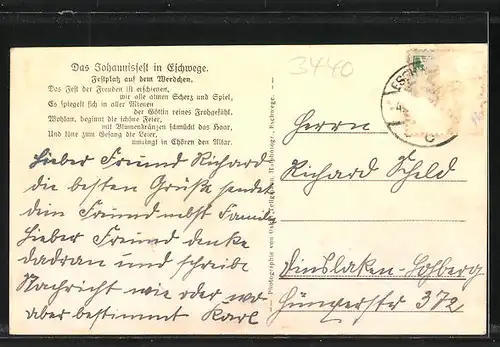 Das Johannisfest in Eschwege.
Festplatz auf dem Werdchen.
Das Fest der Freuden ist erschienen,
wir alle atmen Scherz und Spiel,
Es spiegelt sich in aller Mienen
der Göttin reines Frohgefühl.
Wohlan, beginnt die schöne Feier,
mit Blumenkränzen schmückt das Haar,
Und töne zum Gesang die Leier,
umringt in Chören den Altar.
Lieber Freund Richard
die besten Grüße sendet
dein Freund nebst Familie
Lieber Freund denke
dadran und schreibe
Nachricht wie oder wo
aber bestimmt Karl
3440
Herrn
Richard Scheld
Dinslaken-Lohberg
Hüngerstr 372
Photographie von Eschwege.